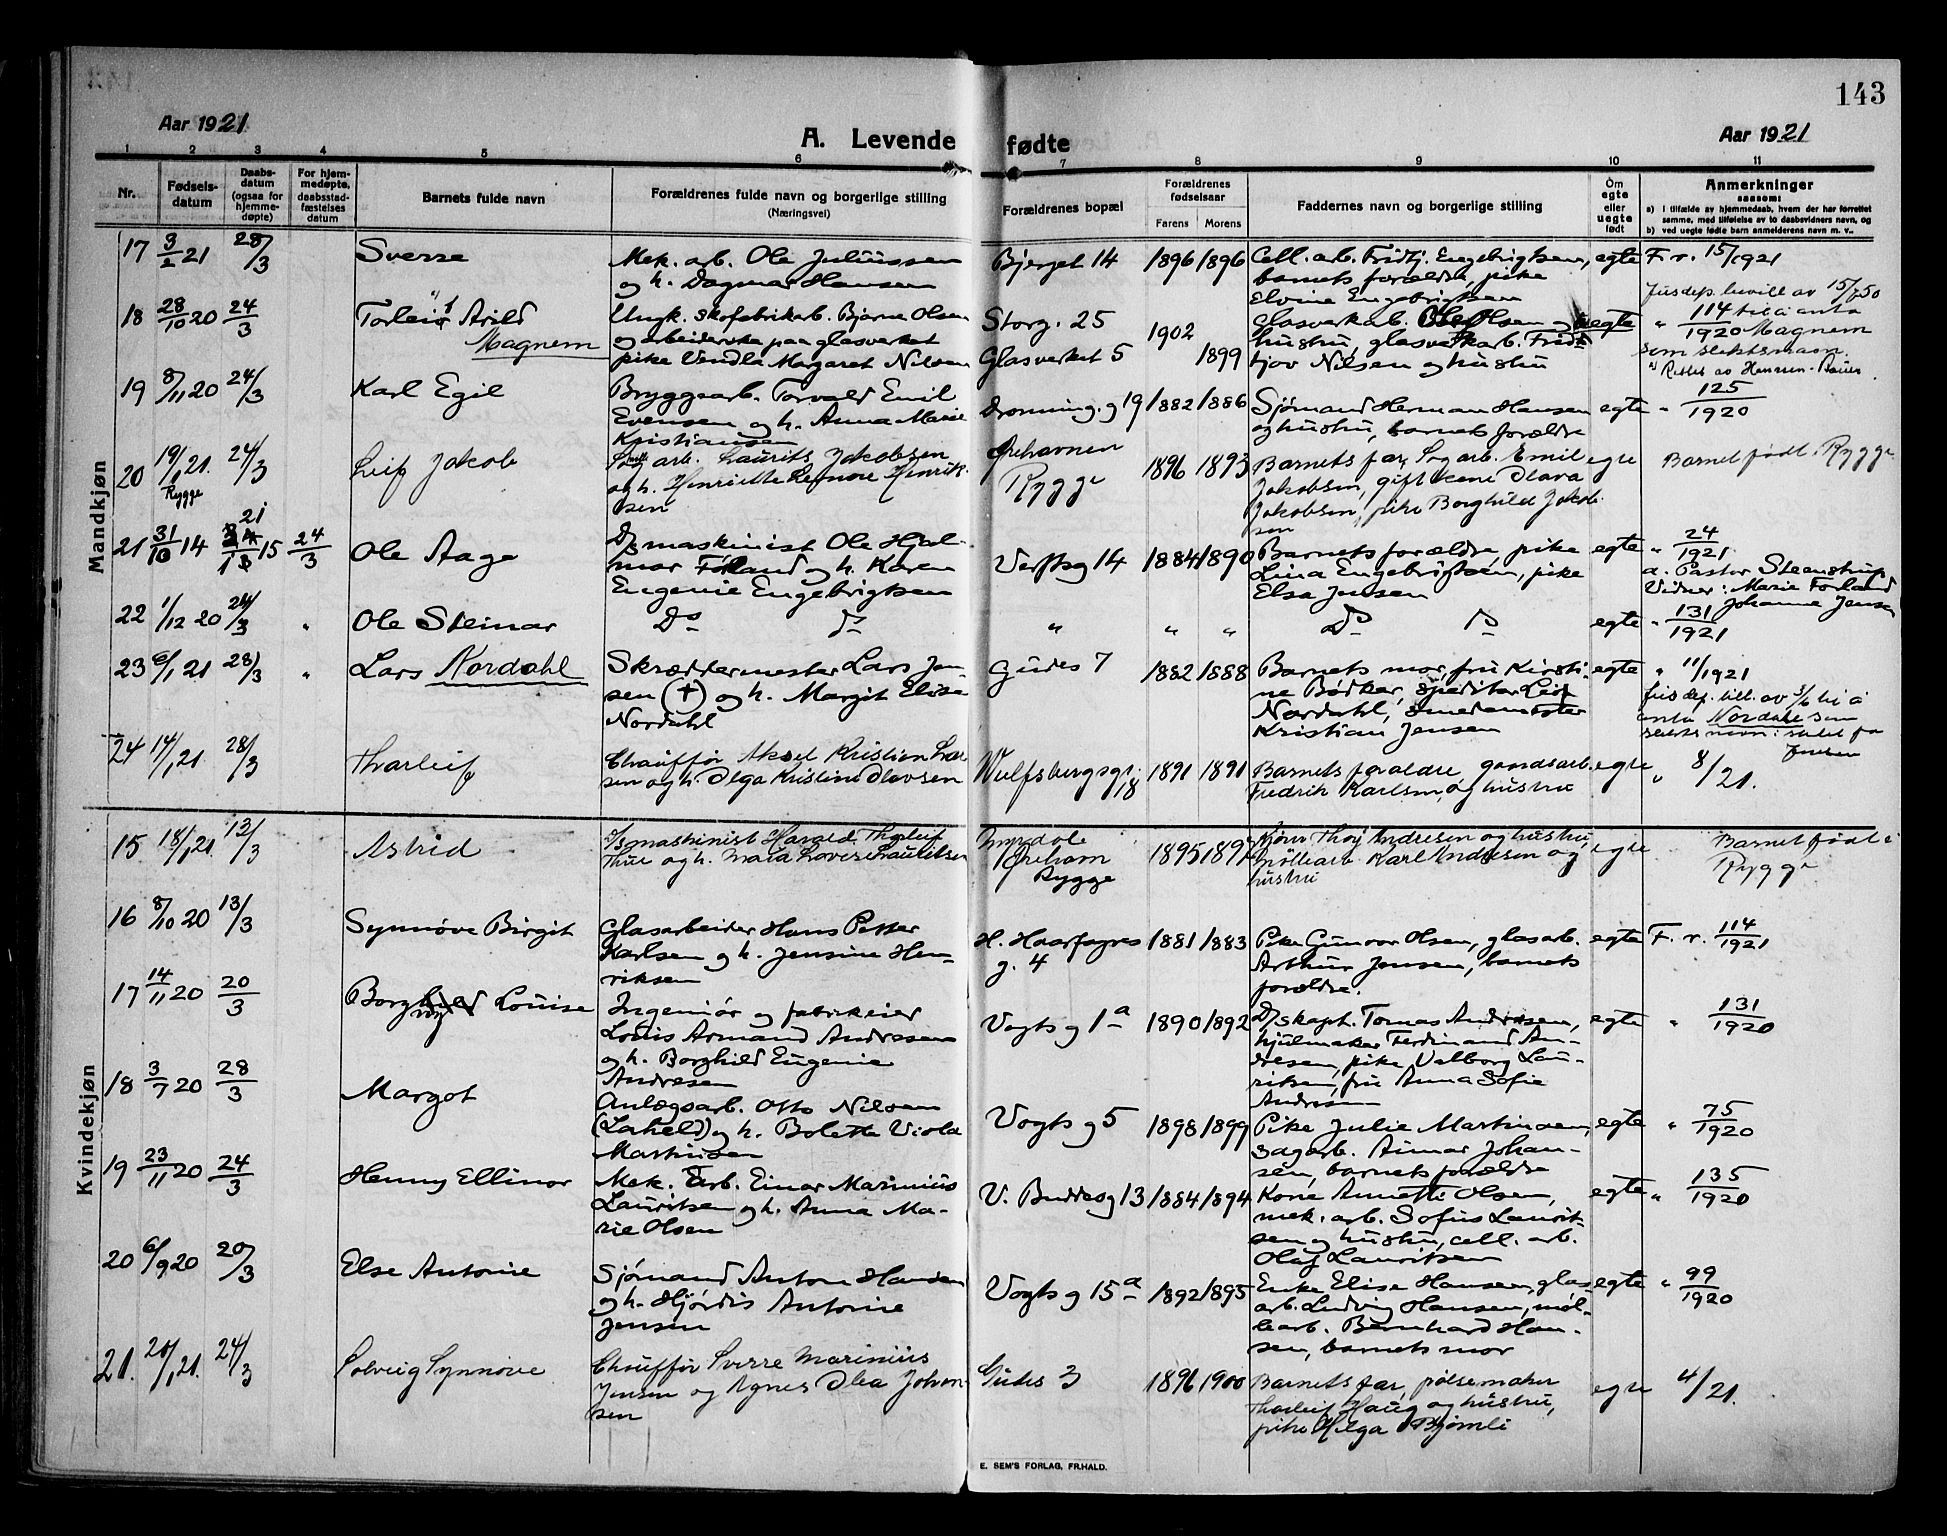 143
Aar 1921
A. Levende fødte
Aar 1921
1 2 3 4 5 6 7 8 9 10 11
Nr.
Fødselsdatum
Daabsdatum (ogsaa for hjemmedøpte)
For hjemmedøpte, daabsstadfæstelses datum
Barnets fulde navn
Forældrenes fulde navn og borgerlige stilling
(Næringsvei)
Forældrenes bopæl
Forældrenes fødselsaar
Farens Morens
Faddernes navn og borgerlige stilling
Om egte eller uegte født
Anmerkninger
saasom:
a) I tilfælde av hjemmedaab, hvem der har forrettet
samme, med tilføielse av to daabsvidners navn, og
b) ved uegte fødte barn anmelderens navn m. v..
Mandkjøn
17 3/2 21 28/3 Sverre
Mek. arb. Ole Juliussen
og h. Dagmar Hansen
Bjerget 14 1896 1896
Cell. arb. Fridtj. Engebrigtsen,
barnets forældre, pike
Elvine Engebrigtsen
egte F. r. 15/1921
18 28/10 20 24/3 Torleif Arild
Magnem
Ungk. skofabrikarb. Bjarne Olsen
og arbeiderske paa glasverket
pike Vendla Margaret Nilsen
Storg. 25 1902
Glasverket 5 1899
Glasverkab. Olsen og
hustru, glasverkarb. Fridt
jov Nilsen og hustru
uegte
Jusdep. bevill av 15/7 50
" 114/1920 til å anta
Magnem
som slektsnavn.
19 8/11 20 24/3 Karl Egil
Bryggearb. Torvald Emil
Evensen og h. Anna Marie
Kristiansen
Dronning. g 19 1882 1886
Sjømand Herman Hansen
og hustru, barnets forældre
egte " 125/1920
20 19/1 21. 24/3 Leif Jakob
Rygge
arb. Laurits Jakobsen
og h. Henriette Lenore Henrik
sen
Ørehavnen
Rygge
1896 1893
Barnets far, Sagarb. Emil
Jakobsen, gift kone Olava
Jakobsen, pike Borghild Jakob
sen
egte Barnet født i Rygge
21 31/10 14 21 15 24/3 Ole Aage
D/s maskinist Ole Hjal-
mar Førland og h. Karen
Eugenie Engebrigtsen
Verfts g 14 1884 1890
Barnets forældre, pike
Lina Engebrigtsen, pike
Elsa Jensen
egte " 24/1921
a. Pastor Steenstrup
Vidner: Marie Forland
Johanne Jensen
22 1/12 20 24/3 " Ole Steinar
Do do " " " Do do
egte " 131/1921
23 6/1 21 28/3 " Lars Nordahl
Skræddermester Lars Jen-
sen (+) og h. Margit Elise
Nordahl
Gudes 7 1882 1888
Barnets mor, fru Kirsti-
ne Bødker, speditør Leif
Nordahl, smedemester
Kristian Jensen
egte " 11/1921
jusdep. till. av 3/6 til å
anta Nordahl som
slektsnavn i stedet for
Jensen
24 14/1 21 28/3 Thorleif
Chauffør Aksel Kristian Lar
sen og h. Olga Kristine Olavsen
Wulfsbergsgt. 18 1891 1891
Barnets forældre, gaardsarb.
Fredrik Karlsen, og hustru
egte " 8/21.
Kvindekjøn
15 18/1 21. 13/3 Astrid
D/s maskinist Harald Thorleif
Thue og h. Maia Lovise Lauritsen
Myrdole
Ørehavn
Rygge
1895
Thoj Andresen og hustru,
Møllearb Karl Andresen og
hustru
egte Barnet født i
Rygge
16 8/10 20 13/3 Synnøve Birgit
Glasarbeider Hans Petter
Karlsen og h. Jensine Hen-
riksen
H. Haarfagres
g. 4
1881 1883
Pike Gunvor Olsen, glasarb.
Arthur Jensen, barnets
forældre.
egte F. r. 114/1921
17 14/11 20 20/3 Borghild Louise
Ingeniør og fabrikeier
Louis Armand Andresen
og h. Borghild Eugenie
Andresen
Vogts g 1a 1890 1892
D/s kapt. Tomas Andresen,
hjulmaker Ferdinand An-
dresen, pike Valborg Lau-
ritsen, fru Anna Sofie
Andresen
egte " 131/1920
18 3/7 20 28/3 Margot
Anlægsarb. Otto Nilsen
(Laheld) og h. Bolette Viola
Martinsen
Vogts g 5 1898 1899
Pike Julie Martinsen,
sagarb. Ainar Johan-
sen, barnets forældre
egte " 75/1920
19 23/11 20 24/3 Henny Ellinor
Mek. arb. Einar Marinius
Lauritsen og h. Anna Ma-
rie Olsen
V. Buddes g 13 1884 1894
Kone Annette Olsen,
mek. arb. Sofus Laurit-
sen og hustru, cell. arb.
Olaf Lauritsen
egte " 135/1920
20 6/9 20 20/3 Else Antonie
Sjømand Anton Hansen
og h. Hjørdis Antonie
Jensen
Vogts g 15a 1892 1895
Enke Elise Hansen, glas
arb. Ludvig Hansen, møl-
learb. Bernhard Han-
sen, barnets mor
egte " 99/1920
21. 20/1 21. 24/3 Solveig Synnøve
Chauffør Sverre Marinius
Jensen og Agnes Olea Johan
sen
Gudes 3 1896 1900
Barnets far, pølsemaker
Thorleif Haug og hustru,
pike Helga Bjømli
egte 4/21.
E. SEM'S FORLAG, FR.HALD.